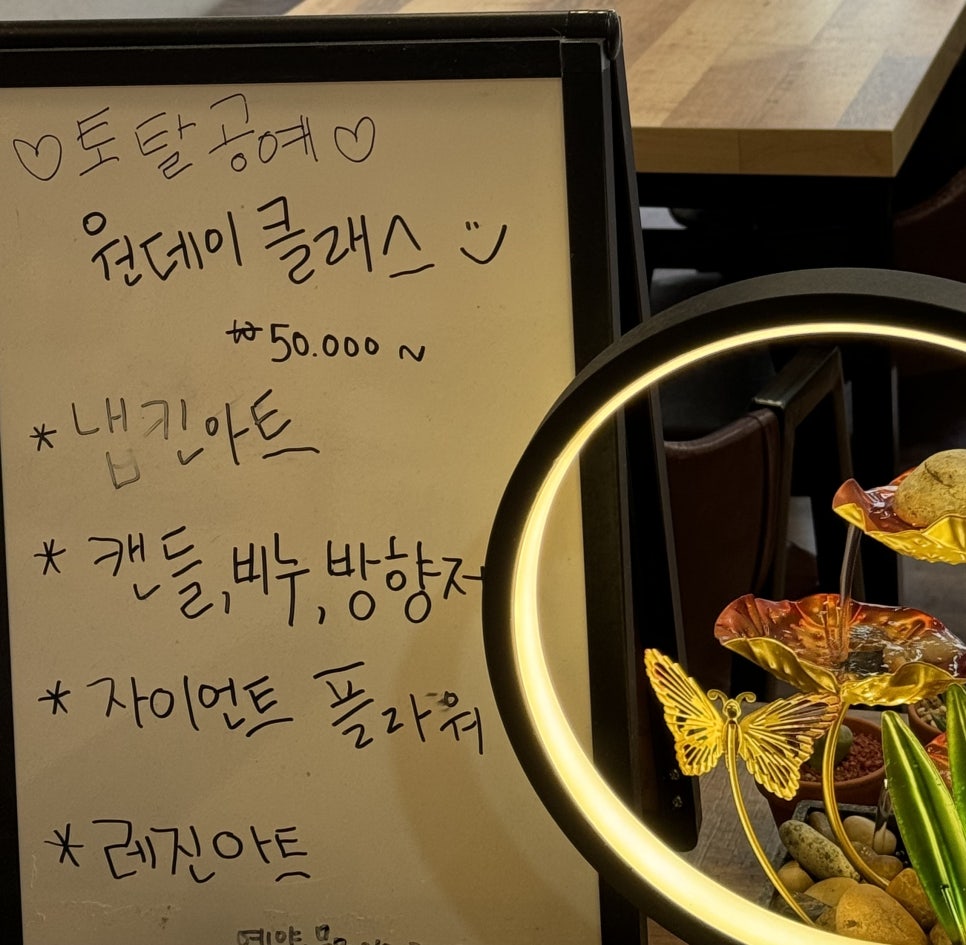 ♡토탈공예♡
원데이 클래스
₩50.000 ~
* 냅킨아트
* 캔들,비누,방향
* 자이언트 플라워
* 레진아트